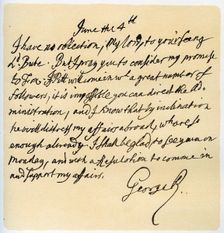 June the 4th
I have no objection, My Lord, to your seeing
Ld Bute. But I pray you to consider my promise
to Fox. If Pitt will come in with a great number of
followers, it is impossible you can direct the Ad
ministration, and I know that by inclination
he will distress my affairs abroad, which are so
enough already. I shall be glad to see you on
Monday, and with a resolution to come in
and support my affairs.
George R.